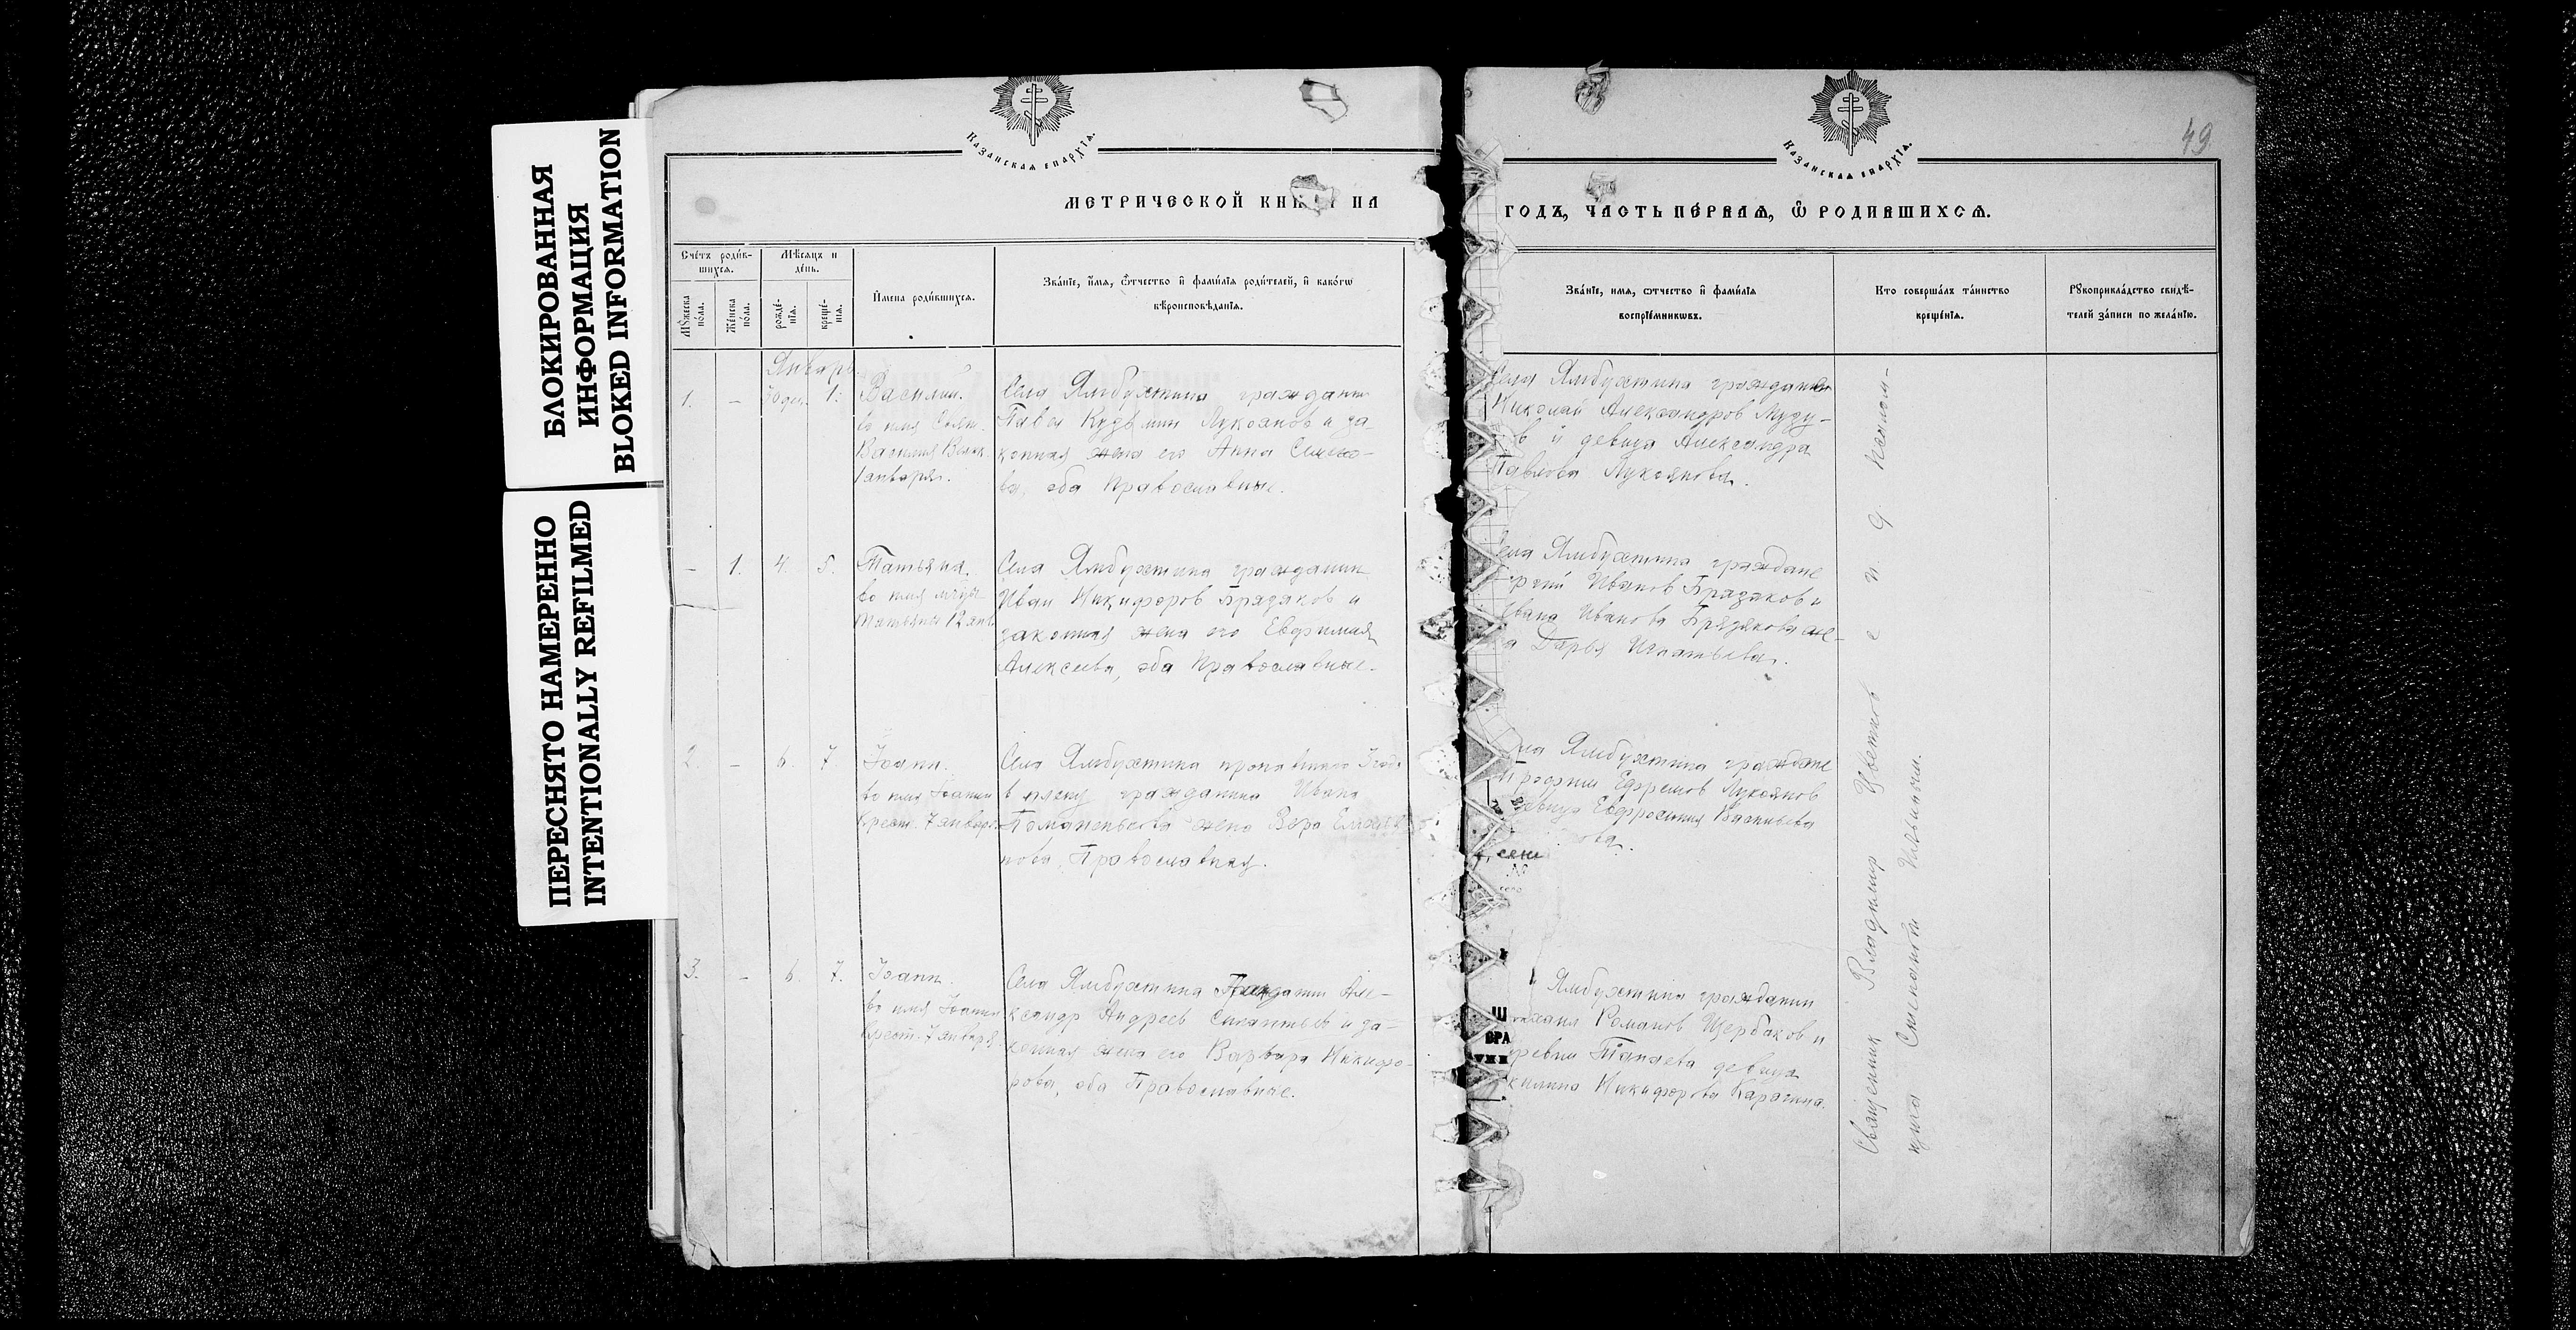 БЛОКИРОВАННАЯ
ИНФОРМАЦИЯ
BLOKED INFORMATION
ПЕРЕСНЯТО НАМЕРЕННО
INTENTIONALLY REFILMED
Казанская епархїѧ.
МЕТРИЧЕСКОЙ КНИГИ НА
Счётъ роди́в-
шихсѧ.
Мѣсѧцъ и
де́нь.
Мꙋ́жеска
по́ла.
Же́нска
по́ла.
рожде́-
нїѧ.
креще́-
нїѧ.
И҆мена роди́вшихсѧ.
Зва́нїе, и҆́мѧ, ѻ҆́тчество и҆ фами́лїѧ роди́телей, и҆ како́гѡ
вѣроисповѣ́данїѧ.
Январь
1. – 30 дек. 1. Василий.
во имя Свят.
Василия Велик.
1 января.
Села Ямбухтина гражданин
Павел Кузьмин Лукоянов и за-
конная жена его Анна Семено-
ва, оба Православные.
– 1. 4. 5. Татьяна.
во имя муч.
Татьяны 12 янв.
Села Ямбухтина гражданин
Иван Никифоров Брядяков и
законная жена его Евфимия
Алексеева, оба Православные.
2. – 6. 7. Іоанн.
во имя Іоанна
Крест. 7 января
Села Ямбухтина
в гражданина Ивана
жена Вера
нова, Православная.
3. – 6. 7. Іоанн.
во имя Іоанна
Крест. 7 января
Села Ямбухтина Гражданин Але-
ксандр Андреев и за-
конная жена его Варвара Никифо-
рова, оба Православные.
Казанская епархїѧ.
49
ГОДЪ, ЧАСТЬ ПЕ́РВАѦ, Ѽ РОДИВШИХСѦ.
Зва́нїе, имѧ, ѻтчество и҆ фами́лїѧ
воспрїе́мникѡвъ.
Кто соверша́лъ та́инство
креще́нїѧ.
Рꙋкоприкла́дство свидѣ́-
телей за́писи по жела́нїю.
Села Ямбухтина гражданин
Николай Александров
и девица Александра
Павлова Лукоянова.
Села Ямбухтина граждане
Иванов Брядяков и
Ивана Иванова Брядякова же-
на Дарья Игнатьева.
Ямбухтина граждане
Ефремов Лукоянов
девица Евфросиния Васильева
Ямбухтина гражданин
Романов Щербаков и
деревни девица
Никифорова
Священник Владимир Цветков с и. д. псалом-
щика Степаном Ильиным.